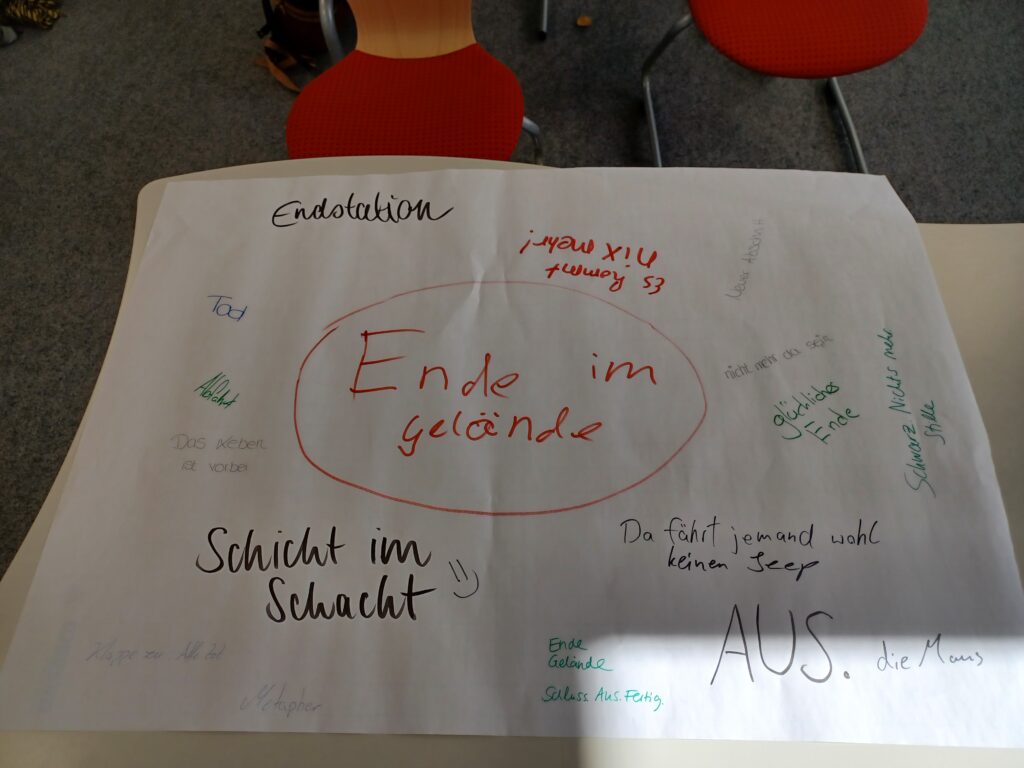 Endstation
Es kommt
nix mehr!
Neuer Abschnitt
Tod
Ende im
gelände
nicht mehr da sein
Abfahrt
glückliches
Ende
Schwarz Nichts mehr
Stille
Das Leben
ist vorbei
Schicht im
Schacht
Da fährt jemand wohl
keinen Jeep
AUS. die Maus
Klappe zu. Affe tot
Ende
Gelände
Schluss. Aus. Fertig.
Metapher